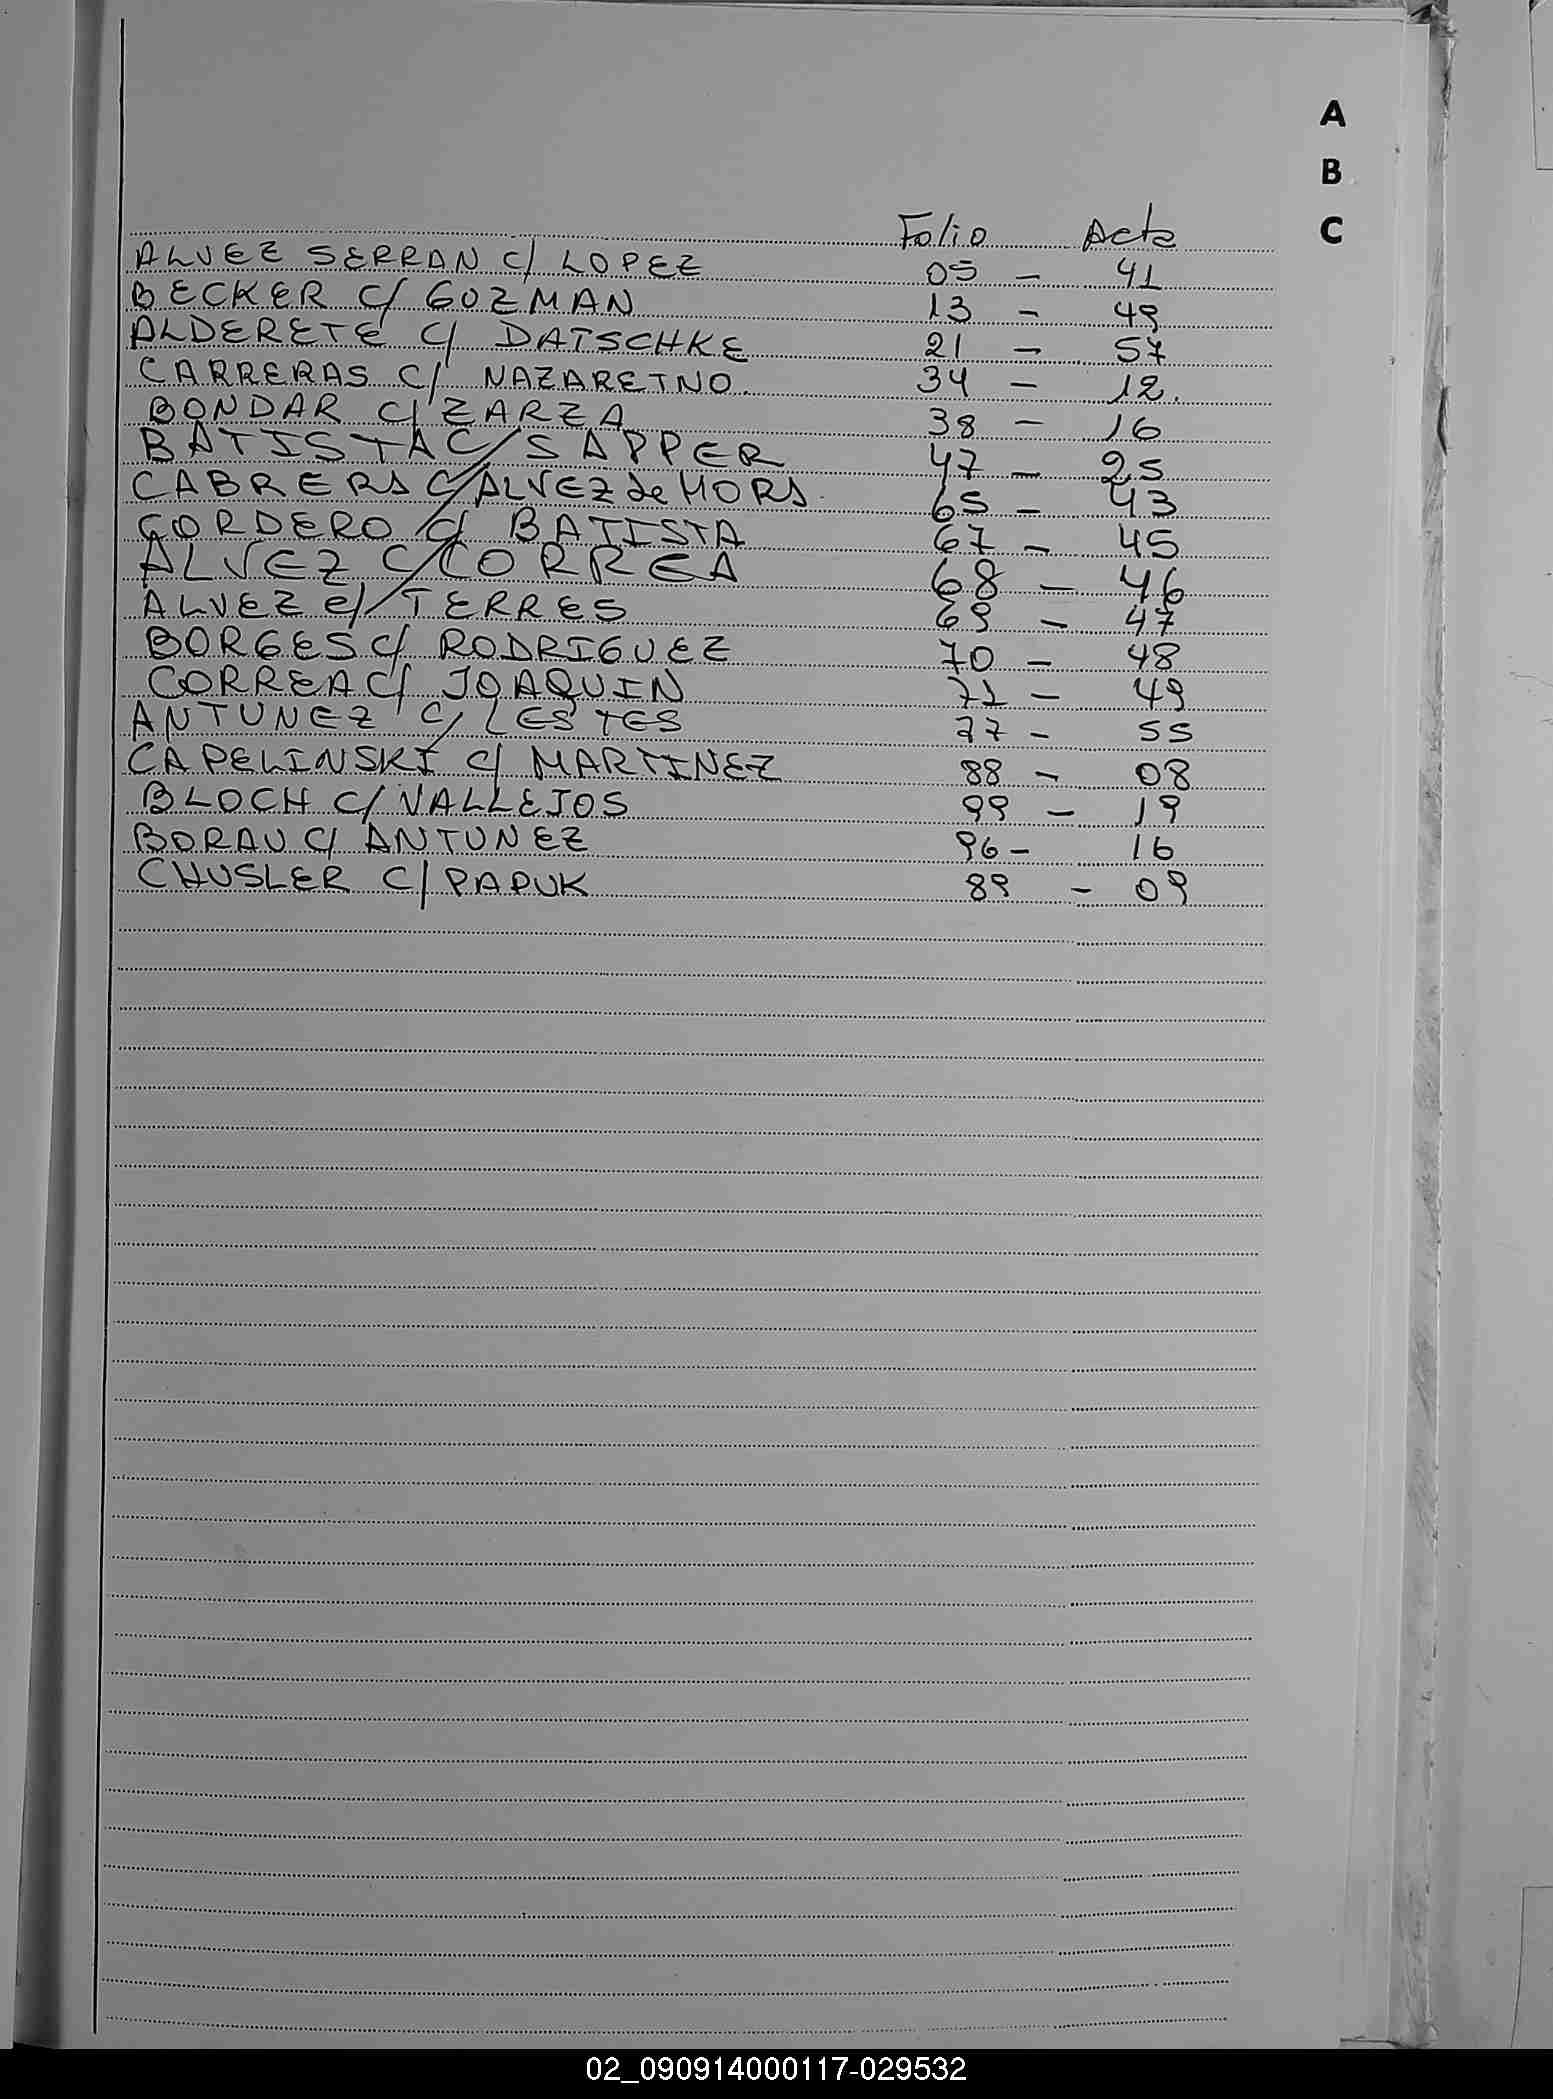 A
B
C
Folio Acta
ALVEZ SERRAN C/ LOPEZ 05 - 41
BECKER C/ GUZMAN 13 - 49
ALDERETE C/ DATSCHKE 21 - 57
CARRERAS C/ NAZARETNO. 34 - 12.
BONDAR C/ ZARZA 38 - 16
BATISTA C/ SAPPER 47 - 25
CABRERA C/ ALVEZ de MORA. 65 - 43
CORDERO C/ BATISTA 67 - 45
ALVEZ C/ CORREA 68 - 46
ALVEZ C/ TERRES 69 - 47
BORGES C/ RODRIGUEZ 70 - 48
CORREA C/ JOAQUIN 71 - 49
ANTUNEZ C/ LESTES 77 - 55
CAPELINSKI C/ MARTINEZ 88 - 08
BLOCH C/ VALLEJOS 99 - 19
BORAU C/ ANTUNEZ 96 - 16
CHUSLER C/ PAPUK 89 - 09
02_090914000117-029532